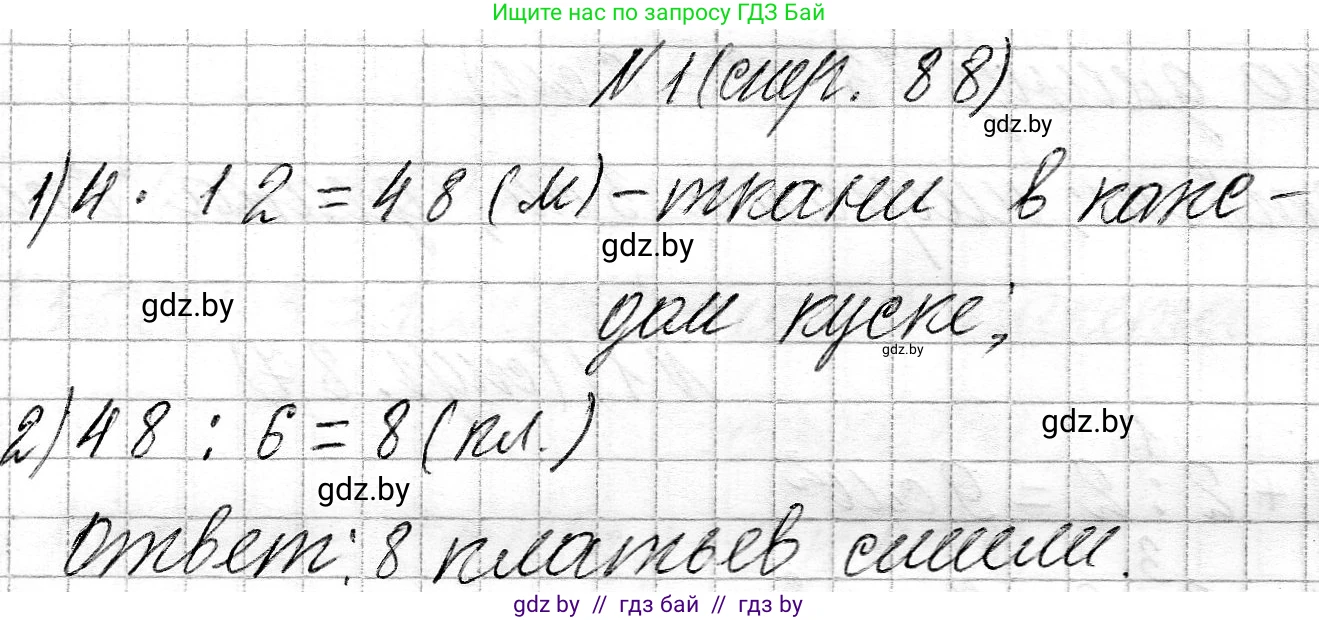 Ищите нас по запросу ГДЗ Бай
№1 (стр. 88)
gdz.by
1) 4 · 12 = 48 (м) – ткани в каж-
gdz.by
gdz.by
дом куске;
gdz.by
2) 48 : 6 = 8 (пл.)
gdz.by
gdz.by
Ответ: 8 платьев сшили.
gdz.by // гдз бай // гдз by